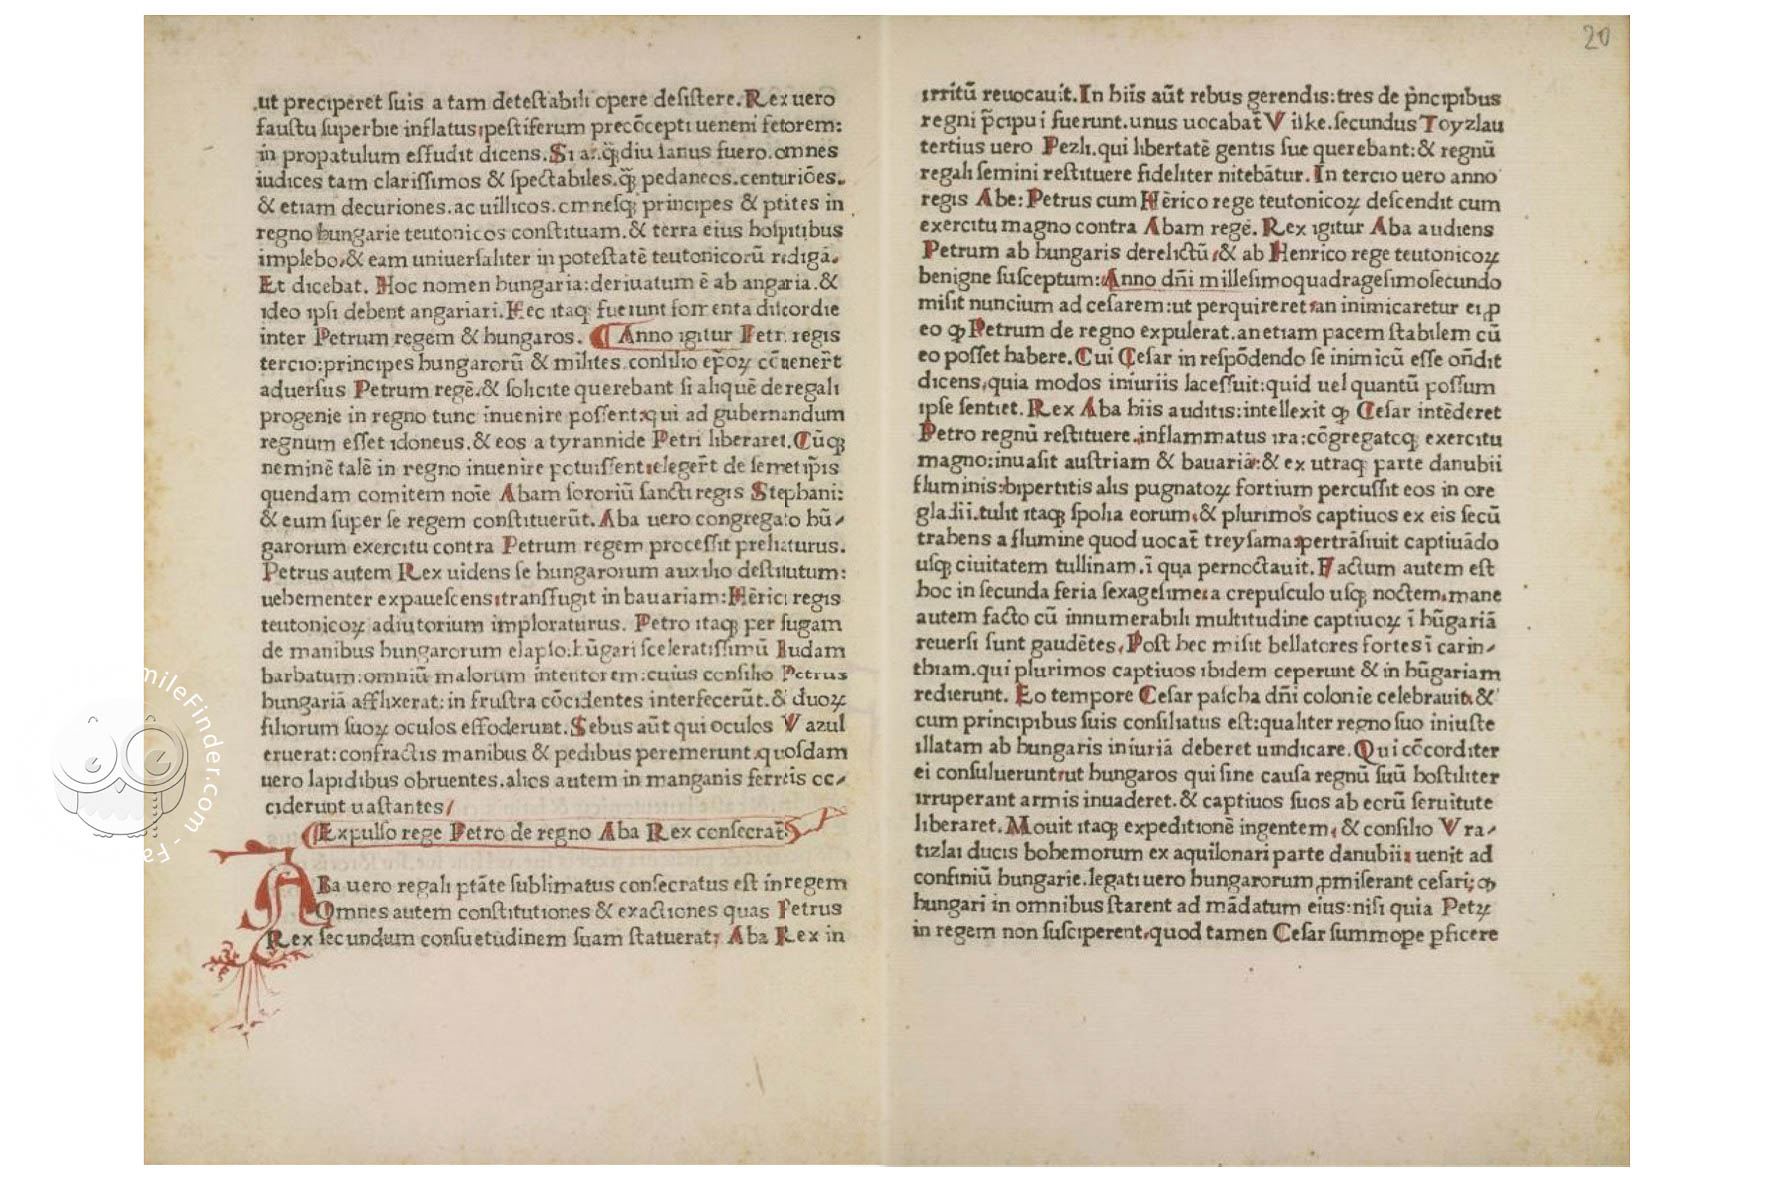 ut preciperet suis a tam detestabili opere desistere. Rex uero
faustu superbie inflatus: pestiferum precōcepti ueneni fetorem:
in propatulum effudit dicens. Si aliq̄diu sanus fuero. omnes
iudices tam clarissimos & spectabiles. q̄ꝫ pedaneos. centuriōes.
& etiam decuriones. ac uillicos. omnesqꝫ principes & ptātes in
regno hungarie teutonicos constituam. & terrā eius hospitibus
implebo, & eam uniuersaliter in potestatē teutonicorū redigā.
Et dicebat. Hoc nomen hungaria: deriuatum ē ab angaria. &
ideo ipsi debent angariari. Hec itaqꝫ fuerunt fomenta discordie
inter Petrum regem & hungaros. Anno igitur Petri regis
tercio: principes hungarorū & milites. consilio ep̄oꝝ cōuener̄t
aduersus Petrum regē. & solicite querebant si aliquē de regali
progenie in regno tunc inuenire possent: qui ad gubernandum
regnum esset idoneus. & eos a tyrannide Petri liberaret. Cūqꝫ
neminē talē in regno inuenire potuissent: eleger̄t de semetip̄is
quendam comitem noīe Abam sororiū sancti regis Stephani:
& eum super se regem constituerūt. Aba uero congregato hū-
garorum exercitu contra Petrum regem processit preliaturus.
Petrus autem Rex uidens se hungarorum auxilio destitutum:
uehementer expauescens: transfugit in bauariam: Hērici regis
teutonicoꝝ adiutorium imploraturus. Petro itaqꝫ per fugam
de manibus hungarorum elapso: hūgari sceleratissimū Iudam
barbatum: omniū malorum intentorem: cuius consilio Petrus
hungariā afflixerat: in frustra cōcidentes interfecerūt. & duoꝝ
filiorum suoꝝ oculos effoderunt. Sebus aūt qui oculos Vazul
eruerat: confractis manibus & pedibus peremerunt. quosdam
uero lapidibus obruentes. alios autem in manganis ferreis oc-
ciderunt uastantes/
Expulso rege Petro de regno Aba Rex consecrat̄
ABa uero regali ptāte sublimatus consecratus est in regem
Omnes autem constitutiones & exactiones quas Petrus
Rex secundum consuetudinem suam statuerat; Aba Rex in
20
irritū reuocauit. In hiis aūt rebus gerendis: tres de p̄ncipibus
regni p̄cipui fuerunt. unus uocabat̄ Viske. secundus Toyzlau
tertius uero Pezli. qui libertatē gentis sue querebant: & regnū
regali semini restituere fideliter nitebātur. In tercio uero anno
regis Abe: Petrus cum Hērico rege teutonicoꝝ descendit cum
exercitu magno contra Abam regē. Rex igitur Aba audiens
Petrum ab hungaris derelictū, & ab Henrico rege teutonicoꝝ
benigne susceptum: Anno dn̄i millesimoquadragesimosecundo
misit nuncium ad cesarem: ut perquireret: an inimicaretur ei, p
eo ꝙ Petrum de regno expulerat. an etiam pacem stabilem cū
eo posset habere. Cui Cesar in respōdendo se inimicū esse on̄dit
dicens, quia modos iniuriis lacessuit: quid uel quantū possum
ipse sentiet. Rex Aba hiis auditis: intellexit ꝙ Cesar intēderet
Petro regnū restituere. inflammatus ira: cōgregatoqꝫ exercitu
magno: inuasit austriam & bauariā: & ex utraqꝫ parte danubii
fluminis: bipertitis alis pugnatoꝝ fortium percussit eos in ore
gladii. tulit itaqꝫ spolia eorum, & plurimos captiuos ex eis secū
trahens a flumine quod uocat̄ treysama: pertrāsiuit captiuādo
usqꝫ ciuitatem tullinam. ī qua pernoctauit. Factum autem est
hoc in secunda feria sexagesime: a crepusculo usqꝫ noctem, mane
autem facto cū innumerabili multitudine captiuoꝝ ī hūgariā
reuersi sunt gaudētes. Post hec misit bellatores fortes ī carin-
thiam. qui plurimos captiuos ibidem ceperunt & in hūgariam
redierunt. Eo tempore Cesar pascha dn̄i colonie celebrauit. &
cum principibus suis consiliatus est: qualiter regno suo iniuste
illatam ab hungaris iniuriā deberet uindicare. Qui cōcorditer
ei consuluerunt: ut hungaros qui sine causa regnū suū hostiliter
irruperant armis inuaderet. & captiuos suos ab eorū seruitute
liberaret. Mouit itaqꝫ expeditionē ingentem, & consilio Vra-
tizlai ducis bohemorum ex aquilonari parte danubii: uenit ad
confiniū hungarie. legati uero hungarorum ꝓmiserant cesari; ꝙ
hungari in omnibus starent ad mādatum eius: nisi quia Petꝝ
in regem non susciperent, quod tamen Cesar summope p̄ficere